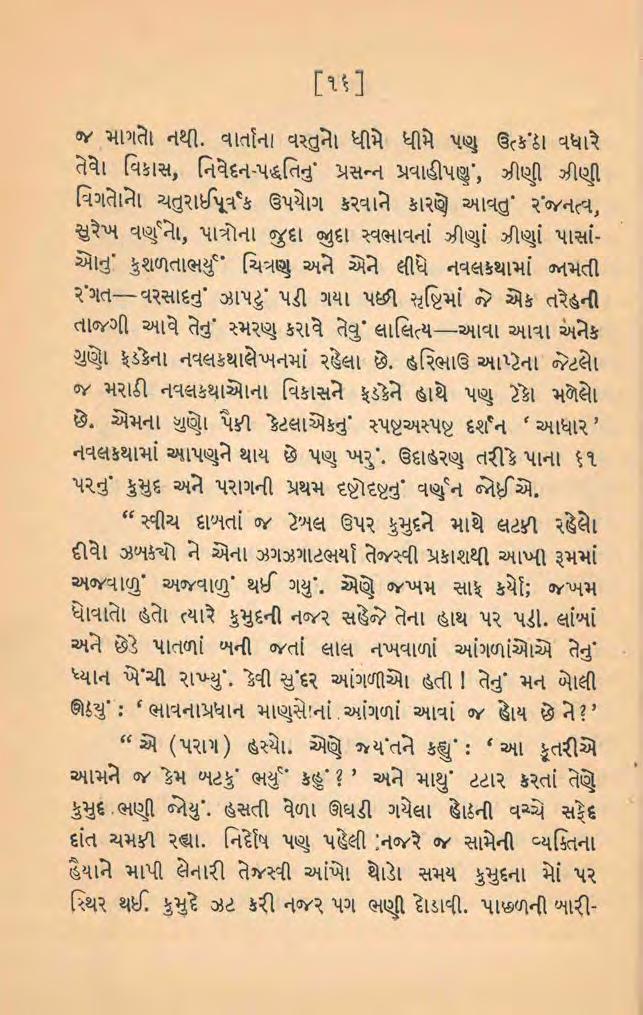 [૧૬]
જ માગતો નથી. વાર્તાના વસ્તુનો ધીમે ધીમે પણ ઉત્કંઠા વધારે
તેવો વિકાસ, નિવેદન-પદ્ધતિનું પ્રસન્ન પ્રવાહીપણું, ઝીણી ઝીણી
વિગતોનો ચતુરાઈપૂર્વક ઉપયોગ કરવાને કારણે આવતું રંજનત્વ,
સુરેખ વર્ણનો, પાત્રોના જુદા જુદા સ્વભાવનાં ઝીણાં ઝીણાં પાસાં-
ઓનું કુશળતાભર્યું ચિત્રણ અને એને લીધે નવલકથામાં જામતી
રંગત—વરસાદનું ઝાપટું પડી ગયા પછી સૃષ્ટિમાં જે એક તરેહની
તાજગી આવે તેનું સ્મરણ કરાવે તેવું લાલિત્ય—આવા આવા અનેક
ગુણો ફડકેના નવલકથાલેખનમાં રહેલા છે. હરિભાઉ આપ્ટેના જેટલો
જ મરાઠી નવલકથાઓના વિકાસને ફડકેને હાથે પણ ટેકો મળેલો
છે. એમના ગુણો પૈકી કેટલાએકનું સ્પષ્ટઅસ્પષ્ટ દર્શન ‘ આધાર ’
નવલકથામાં આપણને થાય છે પણ ખરું. ઉદાહરણ તરીકે પાના ૬૧
પરનું કુમુદ અને પરાગની પ્રથમ દૃષ્ટોદૃષ્ટનું વર્ણન જોઈએ.
“ સ્વીચ દાબતાં જ ટેબલ ઉપર કુમુદને માથે લટકી રહેલો
દીવો ઝબક્યો ને એના ઝગઝગાટભર્યા તેજસ્વી પ્રકાશથી આખી રૂમમાં
અજવાળું અજવાળું થઈ ગયું. એણે જખમ સાફ કર્યો; જખમ
ધોવાતો હતો ત્યારે કુમુદની નજર સહેજે તેના હાથ પર પડી. લાંબાં
અને છેડે પાતળાં બની જતાં લાલ નખવાળાં આંગળાંઓએ તેનું
ધ્યાન ખેંચી રાખ્યું. કેવી સુંદર આંગળીઓ હતી ! તેનું મન બોલી
ઊઠયું : ‘ ભાવનાપ્રધાન માણસોનાં આંગળાં આવાં જ હોય છે ને?’
“ એ (પરાગ) હસ્યો. એણે જયંતને કહ્યું : ‘ આ કૂતરીએ
આમને જ કેમ બટકું ભર્યું કહું ? ’ અને માથું ટટાર કરતાં તેણે
કુમુદ ભણી જોયું. હસતી વેળા ઊઘડી ગયેલા હોઠની વચ્ચે સફેદ
દાંત ચમકી રહ્યા. નિર્દોષ પણ પહેલી નજરે જ સામેની વ્યક્તિના
હૈયાને માપી લેનારી તેજસ્વી આંખો થોડો સમય કુમુદના મોં પર
સ્થિર થઈ. કુમુદે ઝટ કરી નજર પગ ભણી દોડાવી. પાછળની બારી-